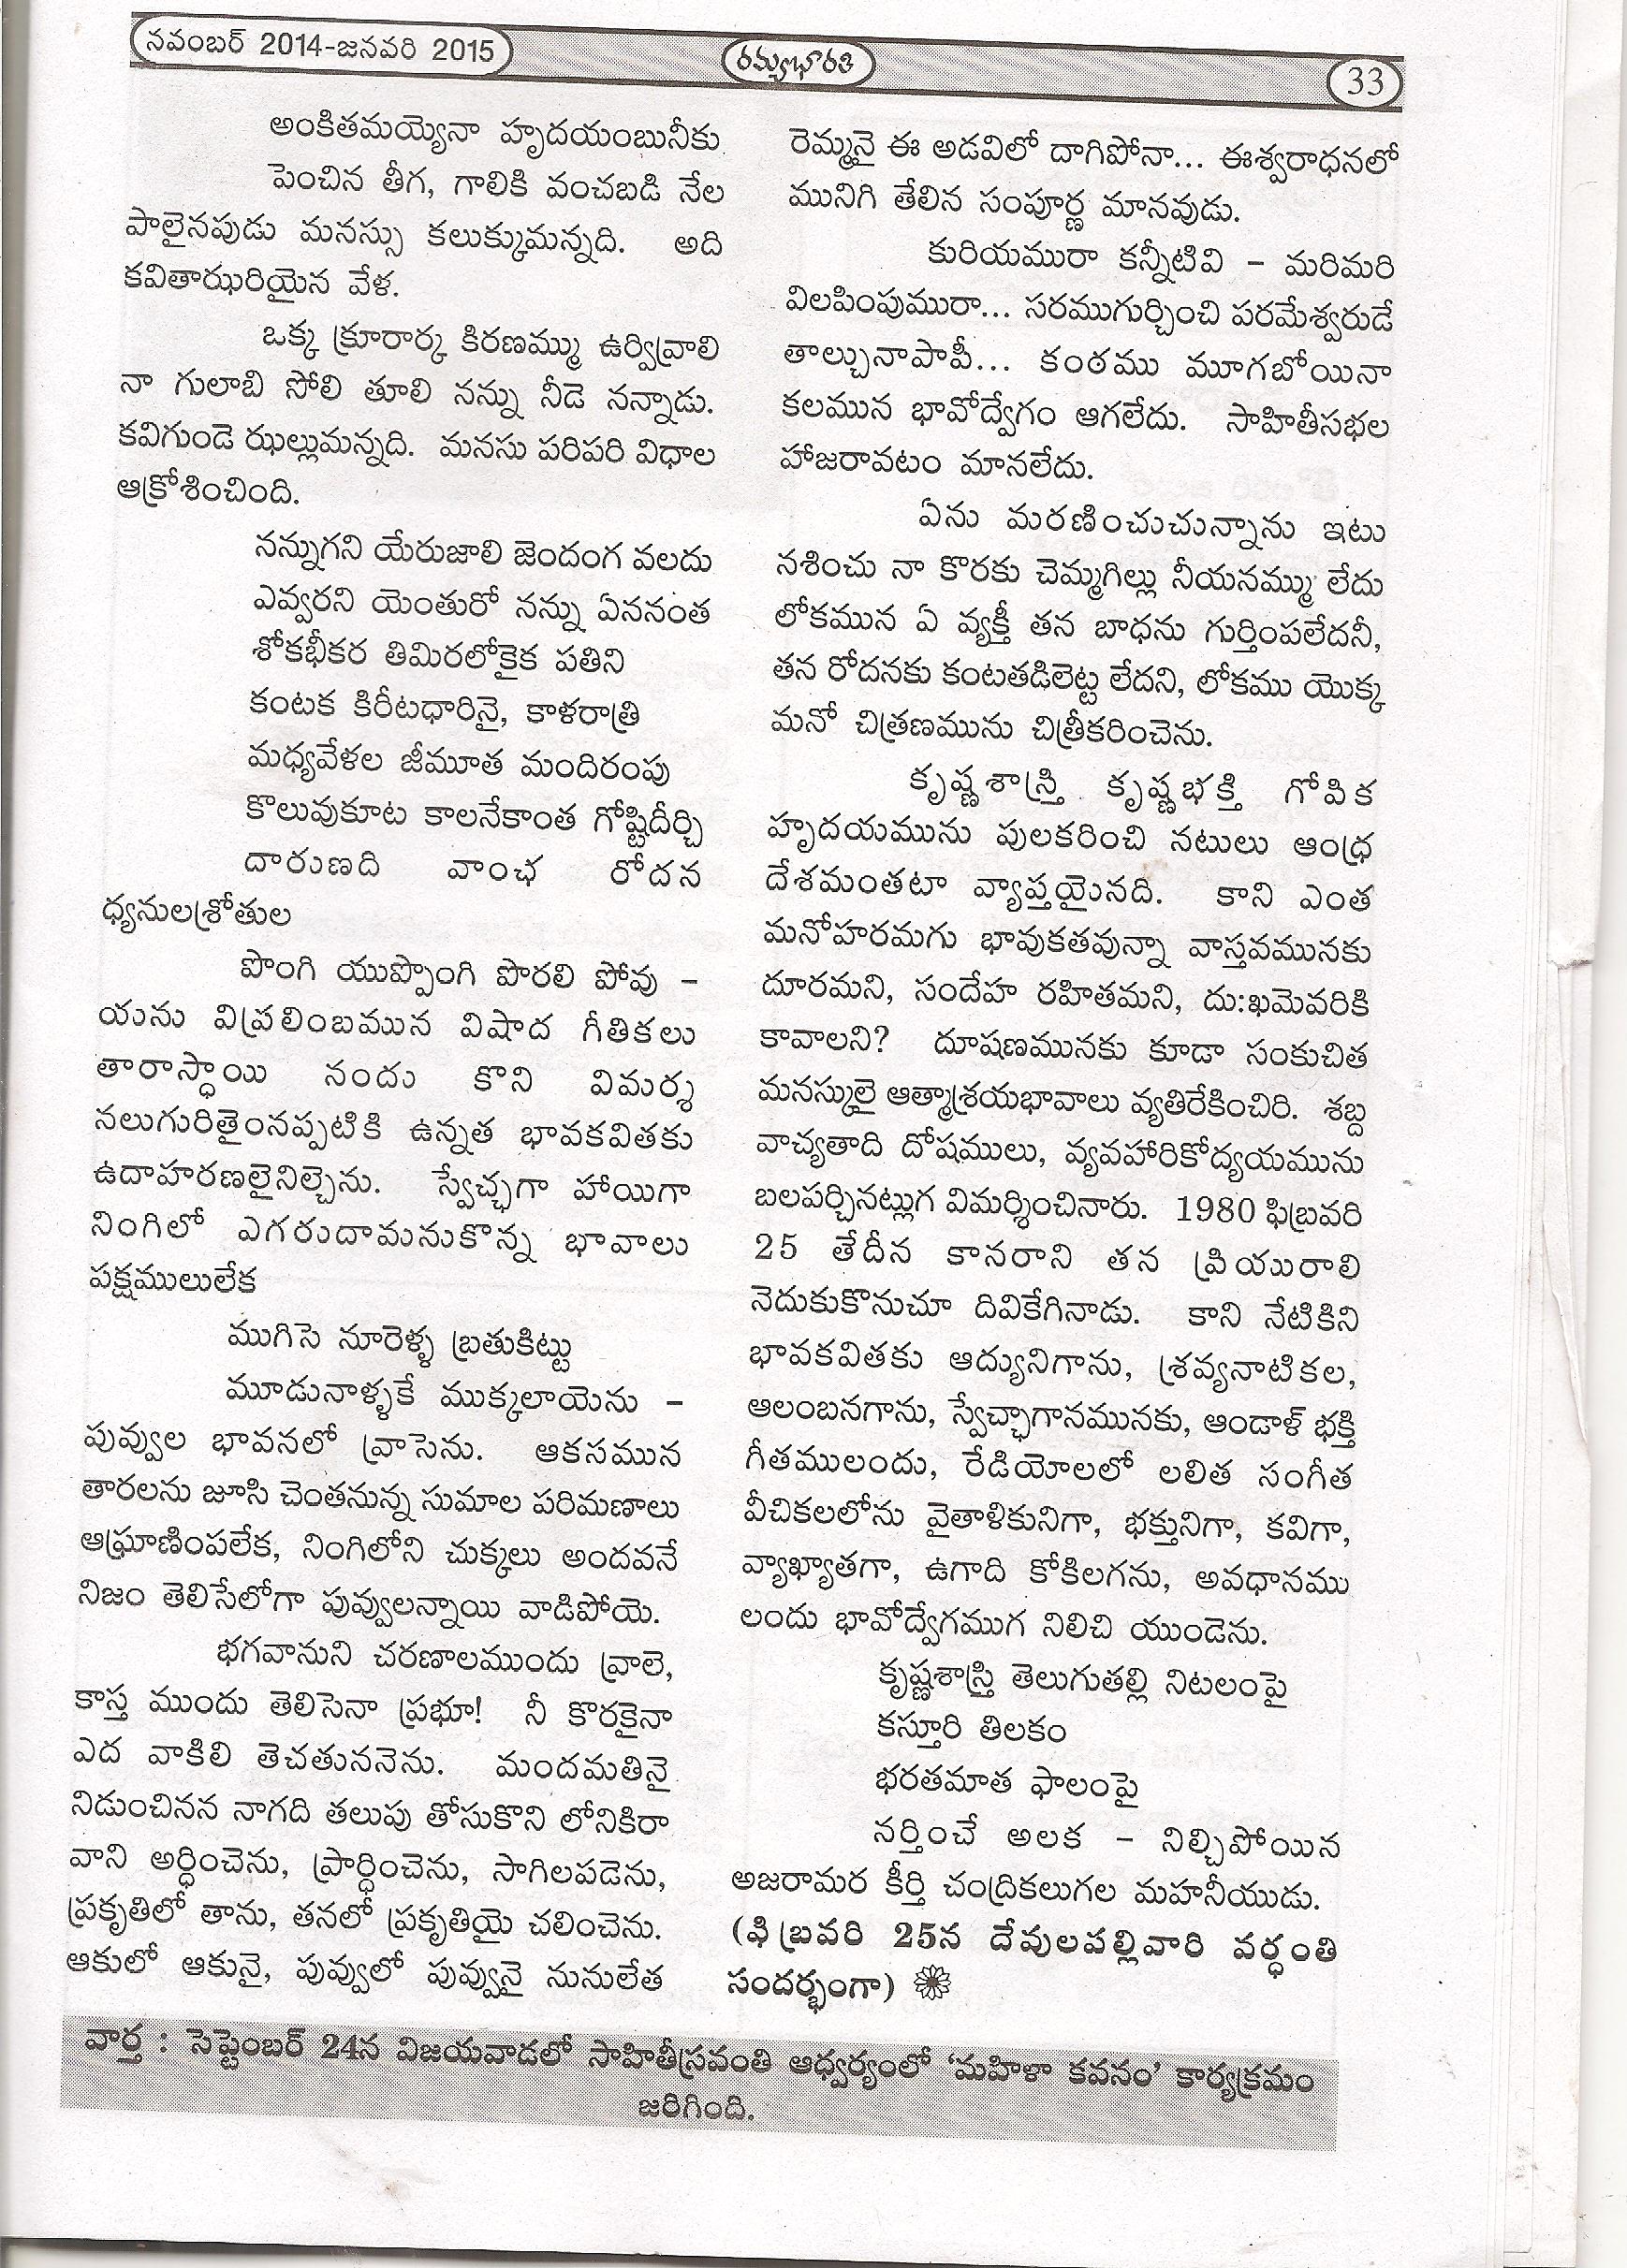 నవంబర్ 2014-జనవరి 2015
రమ్యభారతి
33
అంకితమయ్యెనా హృదయంబునీకు
పెంచిన తీగ, గాలికి వంచబడి నేల
పాలైనపుడు మనస్సు కలుక్కుమన్నది. అది
కవితాఝరియైన వేళ.
ఒక్క క్రూరార్క కిరణమ్ము ఉర్విబ్రాలి
నా గులాబి సోలి తూలి నన్ను నీడె నన్నాడు.
కవిగుండె ఝల్లుమన్నది. మనసు పరిపరి విధాల
ఆక్రోశించింది.
నన్నుగని యేరుజాలి జెందంగ వలదు
ఎవ్వరని యెంతురో నన్ను ఏననంత
శోకభీకర తిమిరలోకైక పతిని
కంటక కిరీటధారినై, కాళరాత్రి
మధ్యవేళల జీమూత మందిరంపు
కొలువుకూట కాలనేకాంత గోష్టిదీర్చి
దారుణది వాంఛ రోదన
ధ్యనులశ్రోతుల
పొంగి యుప్పొంగి పొరలి పోవు –
యను విప్రలింబమున విషాద గీతికలు
తారాస్ధాయి నందు కొని విమర్శ
నలుగురితైంనప్పటికి ఉన్నత భావకవితకు
ఉదాహరణలైనిల్చెను. స్వేచ్ఛగా హాయిగా
నింగిలో ఎగరుదామనుకొన్న భావాలు
పక్షములులేక
ముగిసె నూరెళ్ళ బ్రతుకిట్టు
మూడునాళ్ళకే ముక్కలాయెను –
పువ్వుల భావనలో వ్రాసెను. ఆకసమున
తారలను జూసి చెంతనున్న సుమాల పరిమణాలు
ఆఘ్రాణింపలేక, నింగిలోని చుక్కలు అందవనే
నిజం తెలిసేలోగా పువ్వులన్నాయి వాడిపోయె.
భగవానుని చరణాలముందు వ్రాలె,
కాస్త ముందు తెలిసెనా ప్రభూ! నీ కొరకైనా
ఎద వాకిలి తెచతుననెను. మందమతినై
నిడుంచినన నాగది తలుపు తోసుకొని లోనికిరా
వాని అర్ధించెను, ప్రార్ధించెను, సాగిలపడెను,
ప్రకృతిలో తాను, తనలో ప్రకృతియై చలించెను.
ఆకులో ఆకునై, పువ్వులో పువ్వునై నునులేత
రెమ్మనై ఈ అడవిలో దాగిపోనా... ఈశ్వరాధనలో
మునిగి తేలిన సంపూర్ణ మానవుడు.
కురియమురా కన్నీటివి – మరిమరి
విలపింపుమురా... సరముగుర్చించి పరమేశ్వరుడే
తాల్చునాపాపీ... కంఠము మూగబోయినా
కలమున భావోద్వేగం ఆగలేదు. సాహితీసభల
హాజరావటం మానలేదు.
ఏను మరణించుచున్నాను ఇటు
నశించు నా కొరకు చెమ్మగిల్లు నీయనమ్ము లేదు
లోకమున ఏ వ్యక్తీ తన బాధను గుర్తింపలేదనీ,
తన రోదనకు కంటతడిలెట్ట లేదని, లోకము యొక్క
మనో చిత్రణమును చిత్రీకరించెను.
కృష్ణశాస్త్రి కృష్ణభక్తి గోపిక
హృదయమును పులకరించి నటులు ఆంధ్ర
దేశమంతటా వ్యాప్తయైనది. కాని ఎంత
మనోహరమగు భావుకతవున్నా వాస్తవమునకు
దూరమని, సందేహ రహితమని, దు:ఖమెవరికి
కావాలని? దూషణమునకు కూడా సంకుచిత
మనస్కులై ఆత్మాశ్రయభావాలు వ్యతిరేకించిరి. శబ్ద
వాచ్యతాది దోషములు, వ్యవహారికోద్యయమును
బలపర్చినట్లుగ విమర్శించినారు. 1980 ఫిబ్రవరి
25 తేదీన కానరాని తన ప్రియురాలి
నెదుకుకొనుచూ దివికేగినాడు. కాని నేటికిని
భావకవితకు ఆద్యునిగాను, శ్రవ్యనాటికల,
ఆలంబనగాను, స్వేచ్ఛాగానమునకు, ఆండాళ్ భక్తి
గీతములందు, రేడియోలలో లలిత సంగీత
వీచికలలోను వైతాళికునిగా, భక్తునిగా, కవిగా,
వ్యాఖ్యాతగా, ఉగాది కోకిలగను, అవధానము
లందు భావోద్వేగముగ నిలిచి యుండెను.
కృష్ణశాస్త్రి తెలుగుతల్లి నిటలంపై
కస్తూరి తిలకం
భరతమాత ఫాలంపై
నర్తించే అలక – నిల్చిపోయిన
అజరామర కీర్తి చంద్రికలుగల మహనీయుడు.
(ఫిబ్రవరి 25న దేవులపల్లివారి వర్ధంతి
సందర్భంగా)
వార్త : సెప్టెంబర్ 24న విజయవాడలో సాహితీస్రవంతి ఆధ్వర్యంలో ‘మహిళా కవనం’ కార్యక్రమం
జరిగింది.